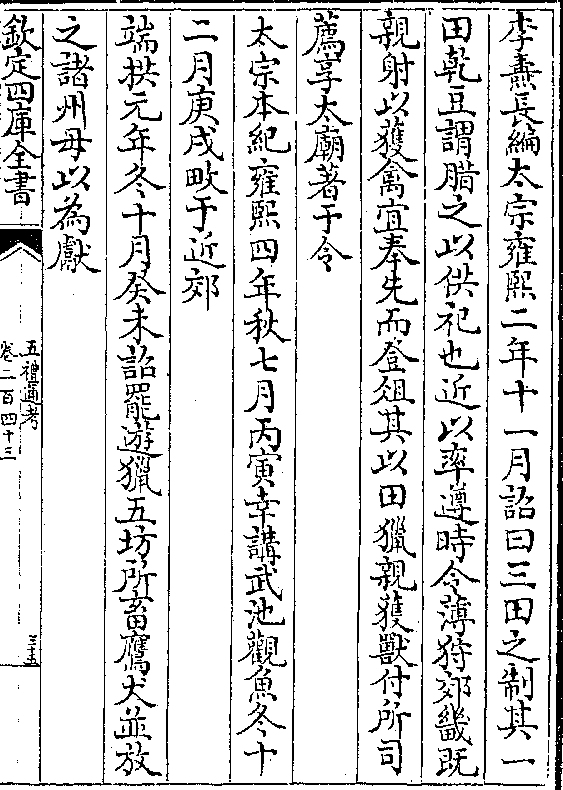 李燾長編太宗雍熙二年十一月詔曰三田之制其一
田乾豆謂腊之以供祀也近以率遵時令薄狩郊畿既
親射以獲禽宜奉先而登俎其以田獵親獲獸付所司
薦享太廟著于令
太宗本紀雍熙四年秋七月丙寅幸講武池觀魚冬十
二月庚戌畋于近郊
端拱元年冬十月癸未詔罷遊獵五坊所畜鷹犬並放
之諸州毋以為獻
欽定四庫全書
五禮通考
卷二百四十三
三十五